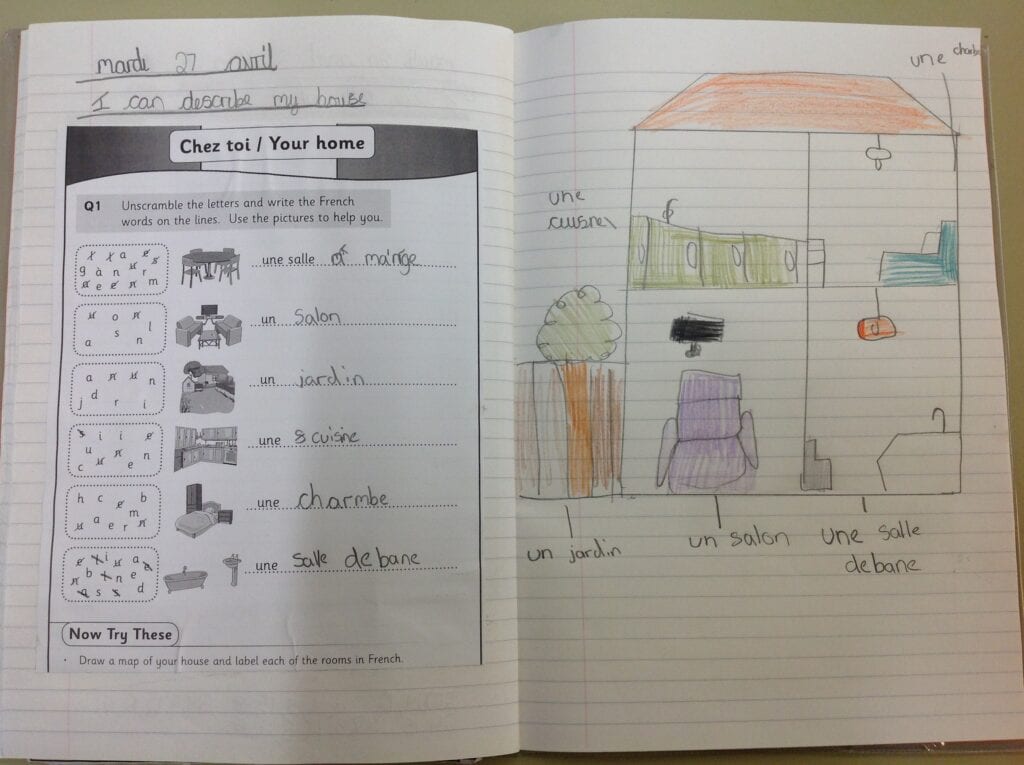 mardi 27 avril
I can describe my house
Chez toi / Your home
Q1 Unscramble the letters and write the French
words on the lines. Use the pictures to help you.
x x a e s
g à n u r
a e e n m
une salle à manige
u o n
s l
a n
un salon
a n u n
d
j r i
un jardin
s i i e
u n
c u e n
une cuisine
h c e b
m
u a e r n
une charmbe
e x i u a a
n b x n e
a s s d
une salle de bane
Now Try These
· Draw a map of your house and label each of the rooms in French.
une
une
un jardin
un salon
une salle
debane